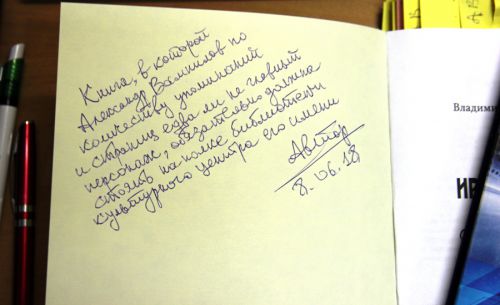 Книга, в которой
Александр Вампилов по
количеству упоминаний
и страниц едва ли не главный
персонаж, обязательно должна
стоять на полке библиотеки
культурного центра его имени
Автор
8.06.18
Владими
ИР